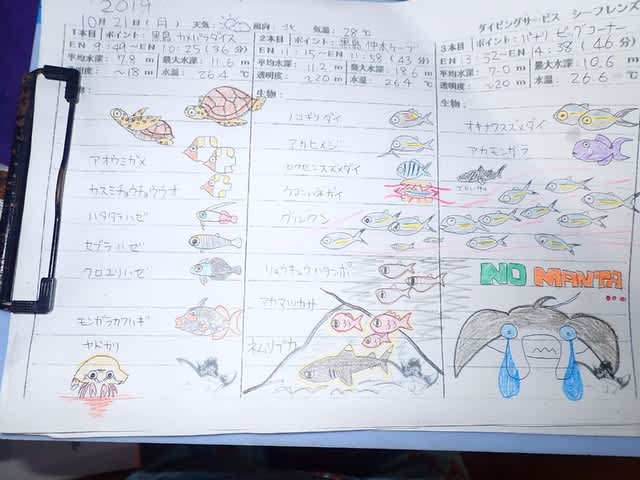 2019
10月21日(月) 天気: 風向: 北 気温: 28℃
ダイビングサービス シーフレンズ
1本目 ポイント: 黒島 カメパラダイス
EN 9:49~EN 10:25 (36分)
平均水深: 7.8 m 最大水深: 11.6 m
透明度: ~18m 水温: 26.4℃
生物:
アオウミガメ
カスミチョウチョウウオ
ハタタテハゼ
セグラハゼ
クロユリハゼ
モンガラカワハギ
ヤドカリ
2本目 ポイント: 黒島 仲本
EN 11:15~EN 11:58 (43分)
平均水深: 11.2 m 最大水深: 18.6 m
透明度: ~20m 水温: 26.4℃
生物:
ノコギリダイ
アカヒメジ
ロクセンスズメダイ
ウコンハネガイ
グルクン
リュウキュウハタンポ
アカマツカサ
ネムリブカ
3本目 ポイント: パナリ ビッグコーナー
EN 13:52~EN 14:38 (46分)
平均水深: 7.0 m 最大水深: 10.6 m
透明度: ~20m 水温: 26.6℃
生物:
オキナワスズメダイ
アカモンガラ
NO MANTA